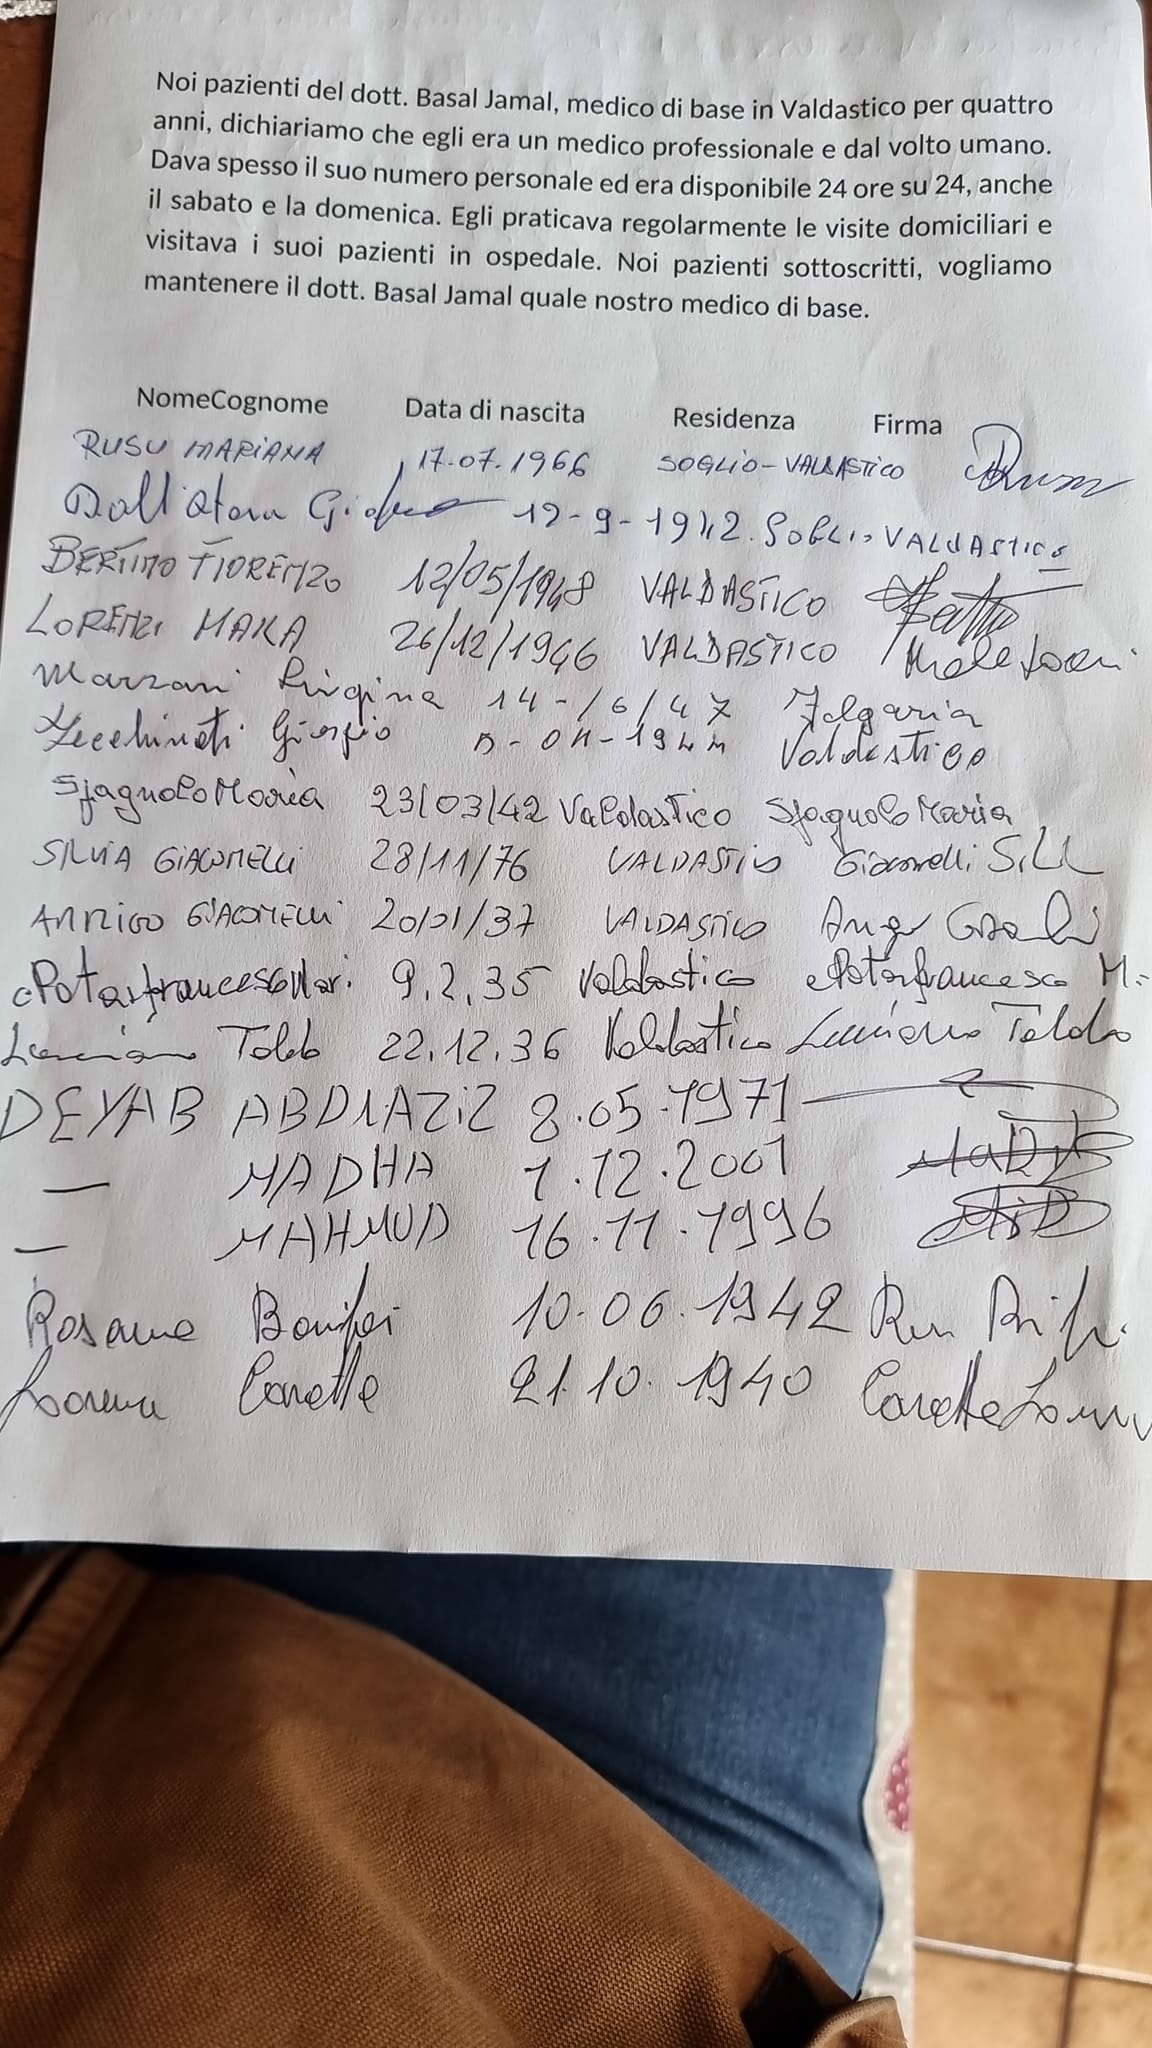 Noi pazienti del dott. Basal Jamal, medico di base in Valdastico per quattro
anni, dichiariamo che egli era un medico professionale e dal volto umano.
Dava spesso il suo numero personale ed era disponibile 24 ore su 24, anche
il sabato e la domenica. Egli praticava regolarmente le visite domiciliari e
visitava i suoi pazienti in ospedale. Noi pazienti sottoscritti, vogliamo
mantenere il dott. Basal Jamal quale nostro medico di base.
NomeCognome Data di nascita Residenza Firma
RUSU MARIANA 17.07.1966 SOGLIO-VALDASTICO
VALDASTICO
BERTINO FIORENZO 12/05/1948 VALDASTICO
LORENZI MARA 26/12/1946 VALDASTICO
Marzari 14-/6/47 Folgaria
Zecchinati Giorgio Valdastico
Sfagnolo Maria 23/03/42 Valdastico Sfagnolo Maria
SILVIA GIACOMELLI 28/11/76 VALDASTICO Giacomelli
ARRIGO GIACOMELLI 20/01/37 VALDASTICO
9.2.35 Valdastico
Luciano Toldo 22.12.36 Valdastico Luciano Toldo
DEYAB ABDLAZIZ 8.05.1971
— MADHA 1.12.2001
— MAHMUD 16.11.1996
10.06.1942
21.10.1940